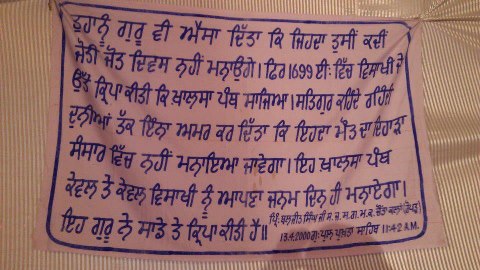 ਤੁਹਾਨੂੰ ਗੁਰੂ ਵੀ ਐਸਾ ਦਿੱਤਾ ਕਿ ਜਿਹਦਾ ਤੁਸੀਂ ਕਦੀ
ਜੋਤੀ ਜੋਤ ਦਿਵਸ ਨਹੀਂ ਮਨਾਓਗੇ। ਫਿਰ 1699 ਈ: ਵਿੱਚ ਵਿਸਾਖੀ ਦੇ
ਉੱਤੇ ਕ੍ਰਿਪਾ ਕੀਤੀ ਕਿ ਖ਼ਾਲਸਾ ਪੰਥ ਸਾਜਿਆ। ਸਤਿਗੁਰ ਕਹਿੰਦੇ ਰਹਿੰਦੀ
ਦੁਨੀਆਂ ਤੱਕ ਇੰਨਾ ਅਮਰ ਕਰ ਦਿੱਤਾ ਕਿ ਇਹਦਾ ਮੌਤ ਦਾ ਦਿਹਾੜਾ
ਸੰਸਾਰ ਵਿੱਚ ਨਹੀਂ ਮਨਾਇਆ ਜਾਵੇਗਾ। ਇਹ ਖ਼ਾਲਸਾ ਪੰਥ
ਕੇਵਲ ਤੇ ਕੇਵਲ ਵਿਸਾਖੀ ਨੂੰ ਆਪਣਾ ਜਨਮ ਦਿਨ ਹੀ ਮਨਾਏਗਾ।
ਇਹ ਗੁਰੂ ਨੇ ਸਾਡੇ ਤੇ ਕ੍ਰਿਪਾ ਕੀਤੀ ਹੈ॥
ਪ੍ਰਿੰ. ਬਲਜੀਤ ਸਿੰਘ ਜੀ ਸ. ਹ. ਸ. ਗ. ਮ. ਕ. ਚੌਂਤਾ ਕਲਾਂ (ਰੋਪੜ)
13.4.2000 ਗੁ: ਪ੍ਰਸਾਦਿ ਸਾਹਿਬ 11:42 A.M.